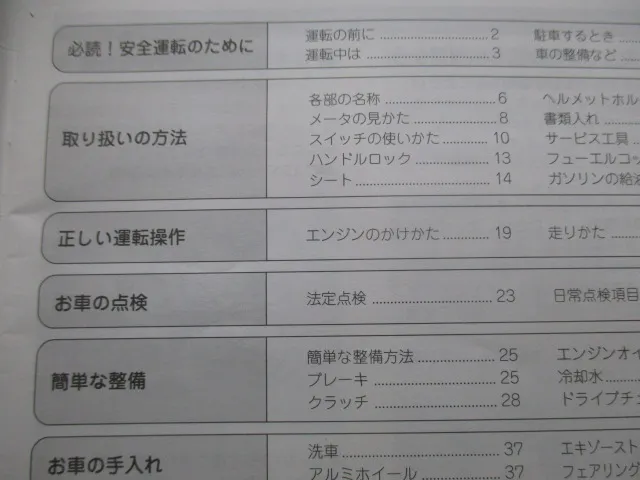 必読！安全運転のために
運転の前に 2 駐車するとき
運転中は 3 車の整備など
取り扱いの方法
各部の名称 6 ヘルメットホル
メータの見かた 8 書類入れ
スイッチの使いかた 10 サービス工具
ハンドルロック 13 フューエルコッ
シート 14 ガソリンの給油
正しい運転操作
エンジンのかけかた 19 走りかた
お車の点検
法定点検 23 日常点検項目
簡単な整備
簡単な整備方法 25 エンジンオイ
ブレーキ 25 冷却水
クラッチ 28 ドライブチェ
お車の手入れ
洗車 37 エキゾースト
アルミホイール 37 フェアリング